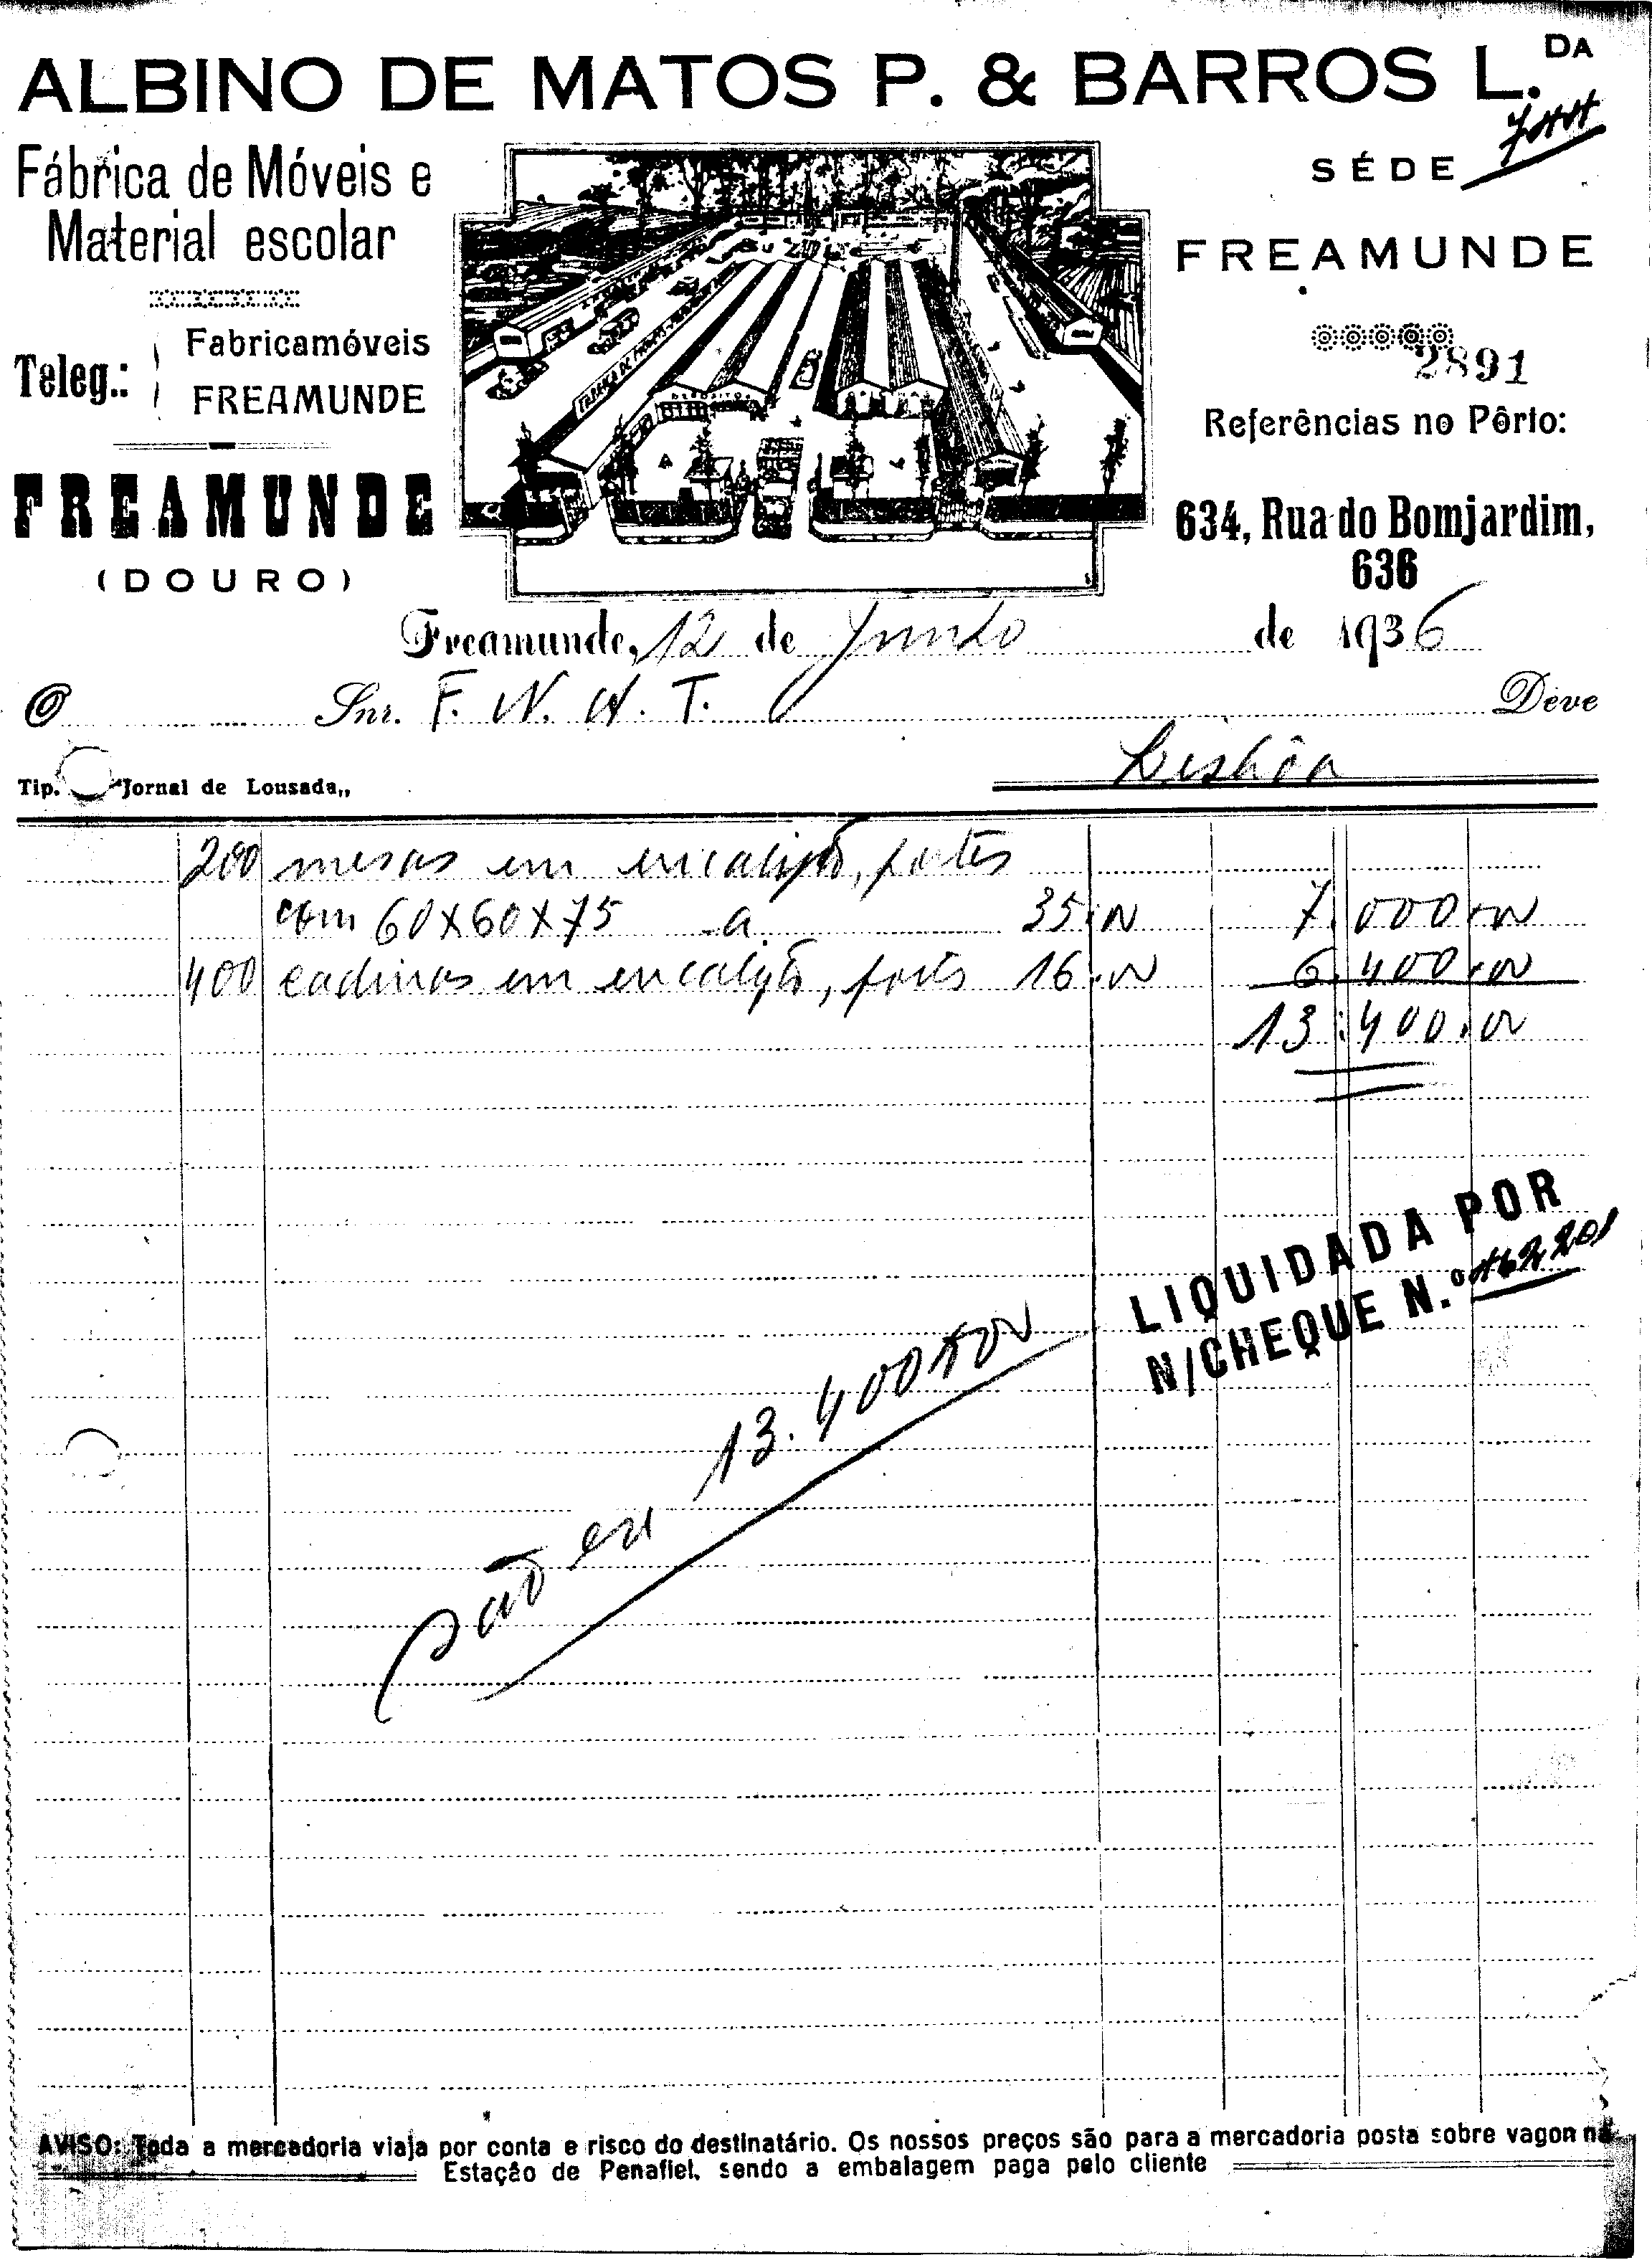 ALBINO DE MATOS P. & BARROS L.DA
Fábrica de Móveis e
Material escolar
Teleg.:
Fabricamóveis
FREAMUNDE
FREAMUNDE
(DOURO)
FABRICA DE
SÉDE
FREAMUNDE
2891
Referências no Pôrto:
634, Rua do Bomjardim,
636
Freamunde, 12 de Junho de 1936
Snr. F. N. A. T. Deve
Lisbôa
Tip. "Jornal de Lousada"
200 mesas em eucalipto, fortes
com 60x60x75 a 35,00 7.000,00
400 cadeiras em eucalipto, fortes 16,00 6.400,00
13:400,00
LIQUIDADA POR
N/CHEQUE N.º
São esc 13.400$00
AVISO: Toda a mercadoria viaja por conta e risco do destinatário. Os nossos preços são para a mercadoria posta sobre vagon na
Estação de Penafiel, sendo a embalagem paga pelo cliente